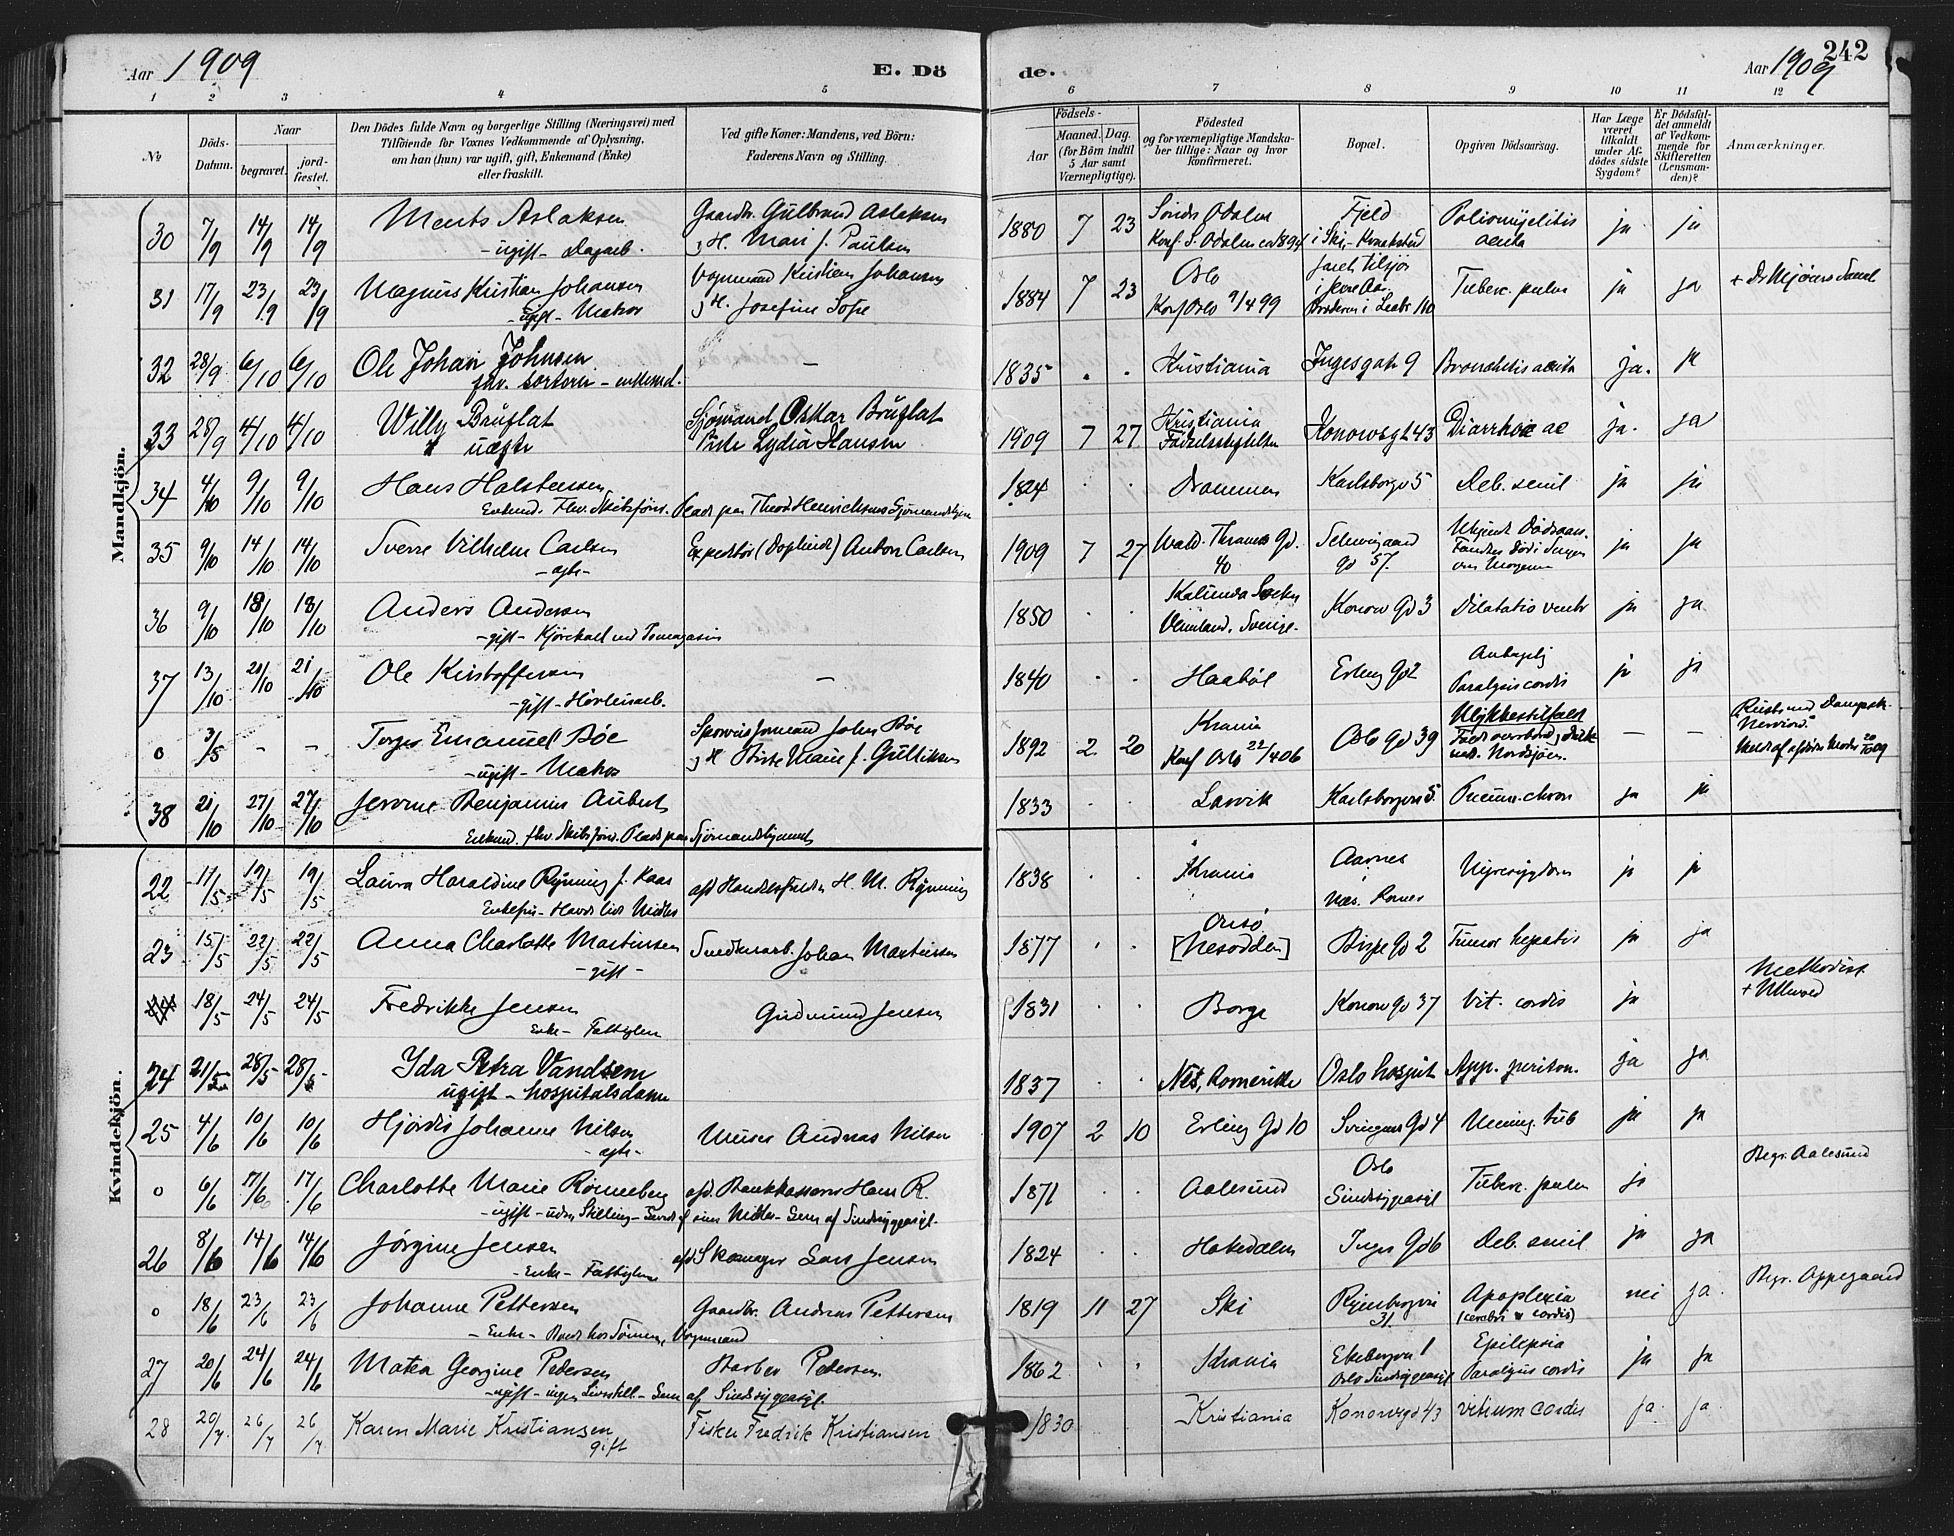 Aar 1909
E. Dö
de.
Aar 1909
242
1 2 3 4 5 6 7 8 9 10 11 12
No
Döds-Datum.
Naar
begravet.
jord-fæstet.
Den Dödes fulde Navn og borgerlige Stilling (Næringsvei) med
Tilföiende for Voxnes Vedkommende af Oplysning,
om han (hun) var ugift, gift, Enkemand (Enke)
eller fraskilt.
Ved gifte Koner: Mandens, ved Börn:
Faderens Navn og Stilling.
Födsels-
Aar
Maaned. Dag.
(for Börn indtil
5 Aar samt
Værnepligtige).
Födested
og for værnepligtige Mandska-
ber tillige: Naar og hvor
konfirmeret.
Bopæl.
Opgiven Dödsaarsag.
Har Læge
været
tilkaldt
under Af-
dödes sidste
Sygdom?
Er Dödsfal-
det anmeldt
af Vedkom-
mende for
Skifteretten
(Lensman-
den)?
Anmærkninger.
Mandkjön.
30 7/9 14/9 14/9 Aslaksen Gaardbr. Gulbrand Aslaksen 1880 7 23 Söndr Odalen Fjeld Poliomyelitis ja ja
- ugift - Dagarb. g H. Mari f. Paulsen Konf. S. Odalen i Ski - Kraakstad acuta
31 17/9 23/9 23/9 Magnus Kristian Johansen Vognmand Kristian Johansen 1884 7 23 Oslo Tuberc. pulm ja ja
- ugift - Matros g H. Josefine Sofie Konf Oslo 9/4 99
32 28/9 6/10 6/10 Ole Johan Johnsen — 1835 . . Kristiania Ingesgate 9 Bronchitis acuta ja. ja
fhv. sorterer - enkemd.
33 28/9 4/10 4/10 Willy Bruflat Sjømand Oskar Bruflat 1909 7 27 Kristiania Konowsgt 43 Diarrhoe ac ja. ja
uægte Pike Lydia Hansen Fødselsstiftelsen
34 4/10 9/10 9/10 Hans Halstensen 1824 . . Drammen Karlsborgv 5 Deb. senil ja ja
Enkmd. Fhv. Skibsförer. Plads paa Thord Henrichsens Sjømandshjem
35 9/10 14/10 14/10 Sverre Vilhelm Carlsen Expeditör Anton Carlsen 1909 7 27 Wald. Thranes Gd. 40 Schweigaard gd 57. Ukjendt Dödsaars. ja ja
- ægte - Fandtes död i Sengen om Morgenen
36 9/10 18/10 18/10 Anders Andersen 1850 . . Konow Gd 3 Dilatatio ventr ja ja
- gift - Kjørekarl ved Vermland. Sverige.
37 13/10 21/10 21/10 Ole Kristoffersen — 1840 . . Haaböl Erling Gd 2 Antagelig ja ja
- gift - Paralysis cordis
0 3/5 — — Emanuel Böe John Böe 1892 2 20 Krania Oslo Gd 39 Ulykkestilfæld — —
- ugift - Matros Marie f. Gulliksen Konf Oslo 22/4 06 Nordsjøen.
38 21/10 27/10 27/10 Jerome Benjamin Aubert 1833 . . Larvik Karlsborgven 5 Pneum. chron ja ja
Enkmd. fhv. Skibsförer. Plads paa Sjömandshjemmet
Kvindekjön.
22 11/5 19/5 19/5 Laura Haraldine Rynning f. Kaas afd Handelsfuldm H. M. Rynning 1838 . . Krania Aarnes Nyresygdom ja ja
Enkefru Nes. Romer
23 15/5 22/5 22/5 Anna Charlotte Martinsen Snedkerarb. Johan Martinsen 1877 . . [Nesodden] Bispe Gd 2 Tumor hepatis ja ja
- gift -
18/5 24/5 24/5 Fredrikke Jensen Gudmund Jensen 1831 . . Borge Konow Gd 37 Vit. cordis ja Methodist
Enke - Fattiglem + Ullevold
24 21/5 28/5 28/5 Ida Petra Vandsem 1837 . . Nes, Romerike Oslo hospit App. periton. ja ja
ugift - hospitalsdame
25 4/6 10/6 10/6 Hjördis Johanne Nilsen Murer Andreas Nilsen 1907 2 10 Erling Gd 10 Gd 4 Mening. tub ja ja
- ægte -
0 6/6 17/6 17/6 Charlotte Marie Rönneberg afd. Bankkasserer Hans R. 1871 . . Aalesund Oslo Sindssygeasyl Tuberc. pulm ja Begr. Aalesund
- ugift - uden Stilling - Forsørget af sine Midler - Lem af Sindssygeasyl.
26 8/6 14/6 14/6 Jörgine Jensen afd Skomager Lars Jensen 1824 . . Hakedalen Inges Gd 6 Deb. senil ja ja
- Enke - Fattiglem
0 18/6 23/6 23/6 Johanne Pettersen Gaardbr. Andreas Pettersen 1819 11 27 Ski Ryenbergvei 31. Apoplexia nei ja. Begr. Oppegaard
- Enke - Boede hos Sönnen, Vognmand (cerebri cordis)
27 20/6 24/6 24/6 Matea Georgine Pedersen Barber Pedersen 1862 . . Krania Ekebergvei 1 Epilepsia ja ja
- ugift - ingen Livsstill - Lem af Sindssygeasyl. Oslo Sindssygeasyl Paralysis cordis
28 20/7 26/7 26/7 Karen Marie Kristiansen Fisker Fredrik Kristiansen 1830 Kristiania Konowsgd 43 vitium cordis ja ja.
gift